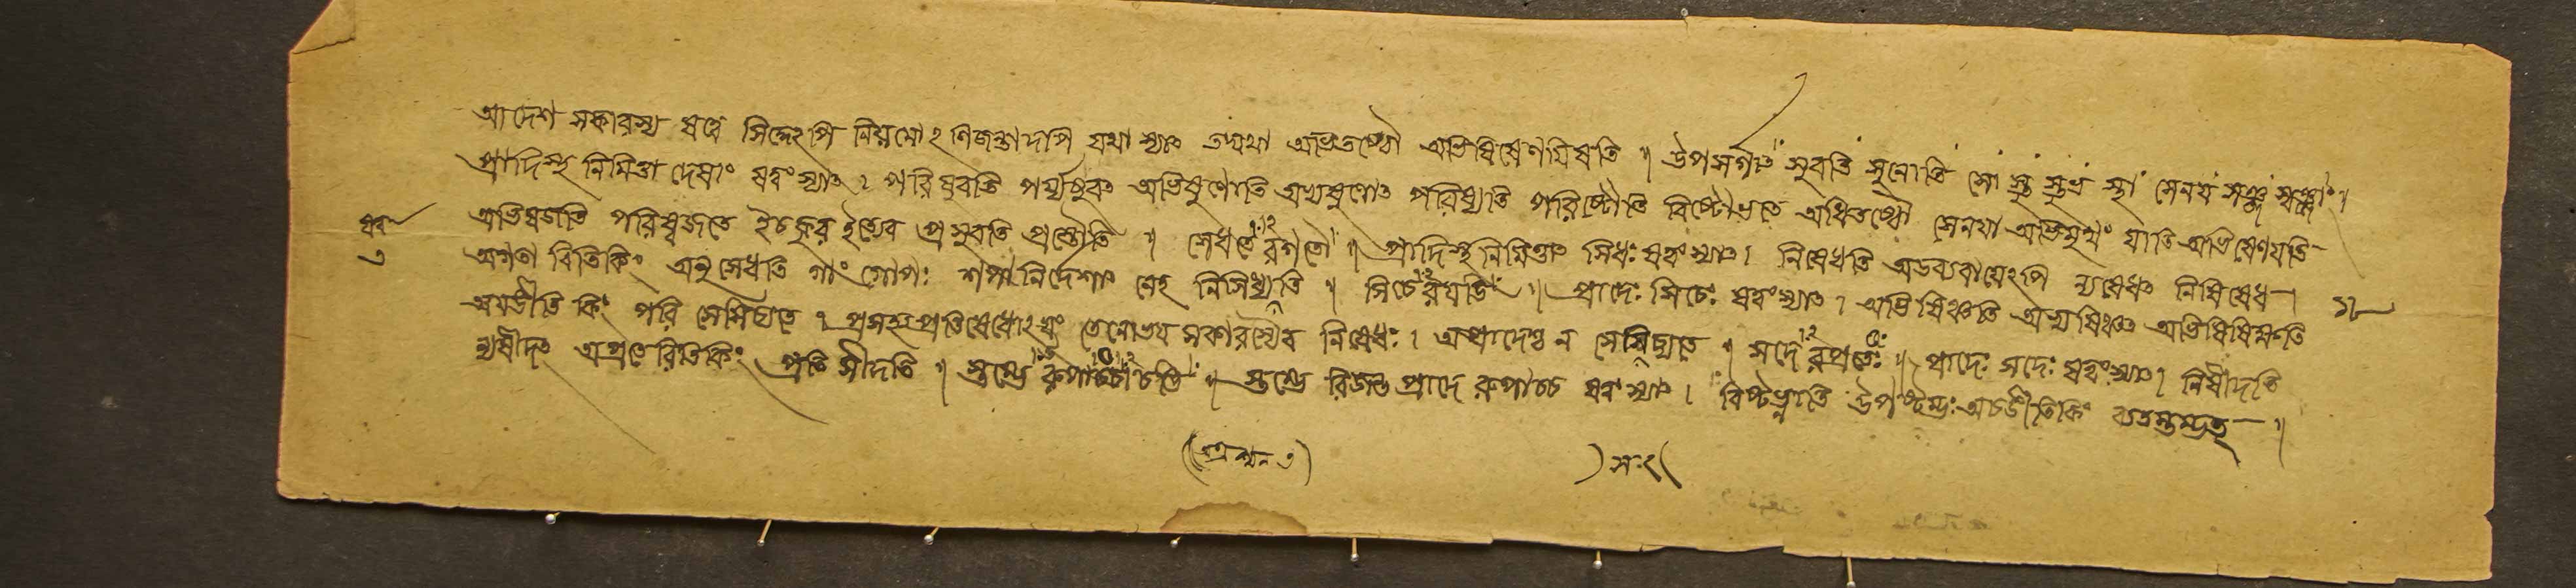 আদেশ সকারস্য ষত্বে সিদ্ধেঽপি নিয়মোঽ ণিজন্তাদপি যথা স্যাৎ তদ্যথা অভিতষ্ঠৌ অভিষিষেণয়িষতি ॥ উপসর্গাৎ সুবতি সুনোতি সো স্তু স্তুভ স্থা সেনয় সঞ্জ স্বঞ্জাং ॥
প্রাদিস্থ নিমিত্তা দেষাং ষত্বং স্যাৎ । পরিষুবতি পর্য্যষুবৎ অভিষুণোতি অভ্যষুণোৎ পরিষ্যতি পরিষ্টৌতি বিষ্টোভতে অধিতষ্ঠৌ সেনয়া অভিমুখং যাতি অভিষেণয়তি
অভিষজতি পরিষ্বজতে ইত্যেব প্রসুবতি প্রস্তৌতি ॥ সেধতে রগতৌ ॥ প্রাদিস্থ নিমিত্তাৎ সিধঃ ষত্বং স্যাৎ । নিষেধতি অড্ব্যবায়েঽপি ন্যষেধৎ নিষিষেধ
অগতা বিতিকিং অনুসেধতি গাং গোপঃ শপা নির্দেশাৎ নেহ নিসিধ্যতি ॥ সিচে রযঙি ॥ প্রাদেঃ সিচেঃ ষত্বং স্যাৎ । অভিষিঞ্চতি অভ্যষিঞ্চৎ অভিষিষিক্ষতি
অযঙীতি কিং পরি সেসিচ্যতে । প্রসহ্য প্রতিষেধোঽয়ং তেনোভয় সকারস্যৈব নিষেধঃ । অপ্রাদেশ্চ ন সেসিচ্যতে ॥ সদে রপ্রতেঃ ॥ প্রাদেঃ সদেঃ ষত্বং স্যাৎ । নিষীদতি
ন্যষীদৎ অপ্রতেরিতিকিং প্রতি সীদতি ॥ স্তম্ভে রুপাচ্চাচঙি ॥ স্তম্ভে রিজন্ত প্রাদে রুপাচ্চ ষত্বং স্যাৎ । বিষ্টভ্নাতি উপষ্টম্ভঃ অচঙীতিকিং ব্যতস্তম্ভৎ ॥